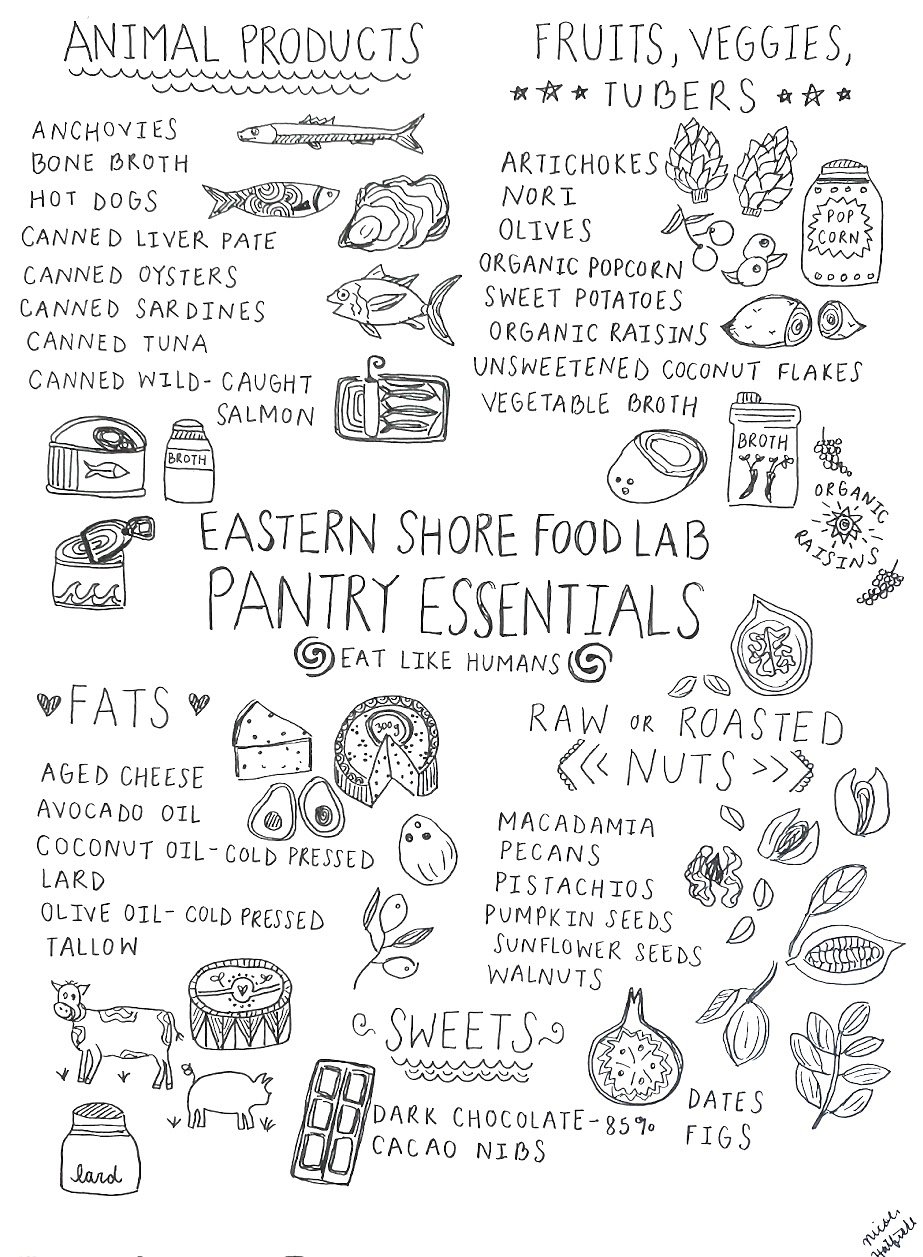 ANIMAL PRODUCTS
ANCHOVIES
BONE BROTH
HOT DOGS
CANNED LIVER PATE
CANNED OYSTERS
CANNED SARDINES
CANNED TUNA
CANNED WILD-CAUGHT
SALMON
BROTH
FRUITS, VEGGIES,
TUBERS
ARTICHOKES
NORI
OLIVES
ORGANIC POPCORN
SWEET POTATOES
ORGANIC RAISINS
UNSWEETENED COCONUT FLAKES
VEGETABLE BROTH
POP
CORN
BROTH
ORGANIC
RAISINS
EASTERN SHORE FOOD LAB
PANTRY ESSENTIALS
EAT LIKE HUMANS
FATS
300g
AGED CHEESE
AVOCADO OIL
COCONUT OIL-COLD PRESSED
LARD
OLIVE OIL-COLD PRESSED
TALLOW
lard
RAW OR ROASTED
NUTS
MACADAMIA
PECANS
PISTACHIOS
PUMPKIN SEEDS
SUNFLOWER SEEDS
WALNUTS
SWEETS
DARK CHOCOLATE-85%
CACAO NIBS
DATES
FIGS